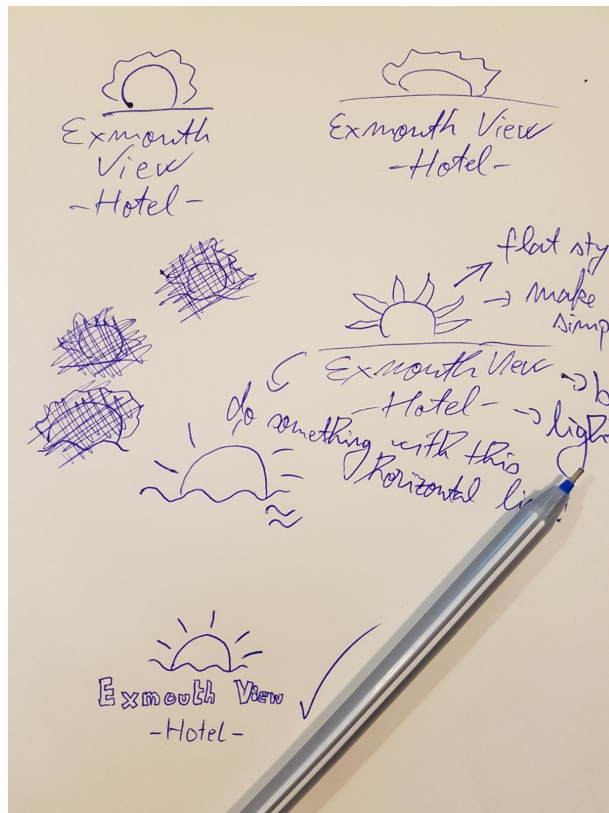 Exmouth
View
-Hotel-
Exmouth View
-Hotel-
flat sty
→ make
simp
Exmouth View → b
-Hotel- → ligh
do something with this
horizontal li
Exmouth View
-Hotel-